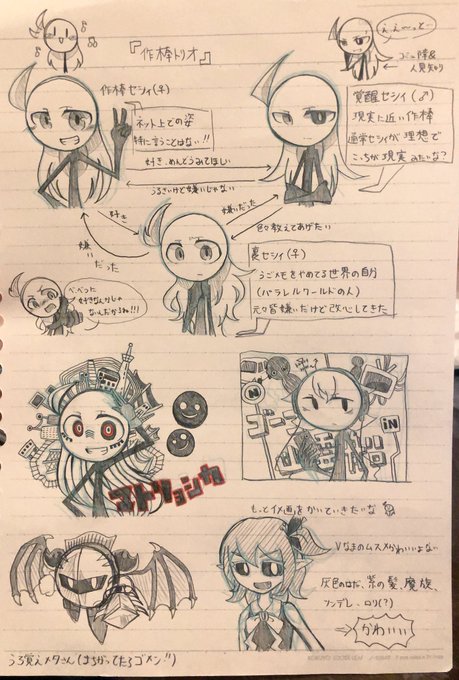 『作棒トリオ』
え、え〜っと…
コミュ障&
人見知り
作棒セシィ(♀)
ネット上での姿
特に言うことはない!!
覚醒セシィ(♂)
現実に近い作棒
通常セシィが理想で
こっちが現実みたいな?
好き、めんどうみてほしい
うるさいけど嫌いじゃない
好き
嫌いだった
嫌いだった
色々教えてあげたい
裏セシィ(♀)
うごメモをやめてる世界の自分
(パラレルワールドの人)
元々皆嫌いだけど改心してきた
べ、べつに
好きなんかじゃ
ないんだからね!!!
マトリョシカ
ゴー
iN
N
もっとイメ画をかいていきたいな
Vなまのムスメかわいいよない
灰色のはだ、紫の髪、魔族、
ツンデレ、ロリ(?)
かわいい
うろ覚えメタさん(まちがってたらゴメン!!)